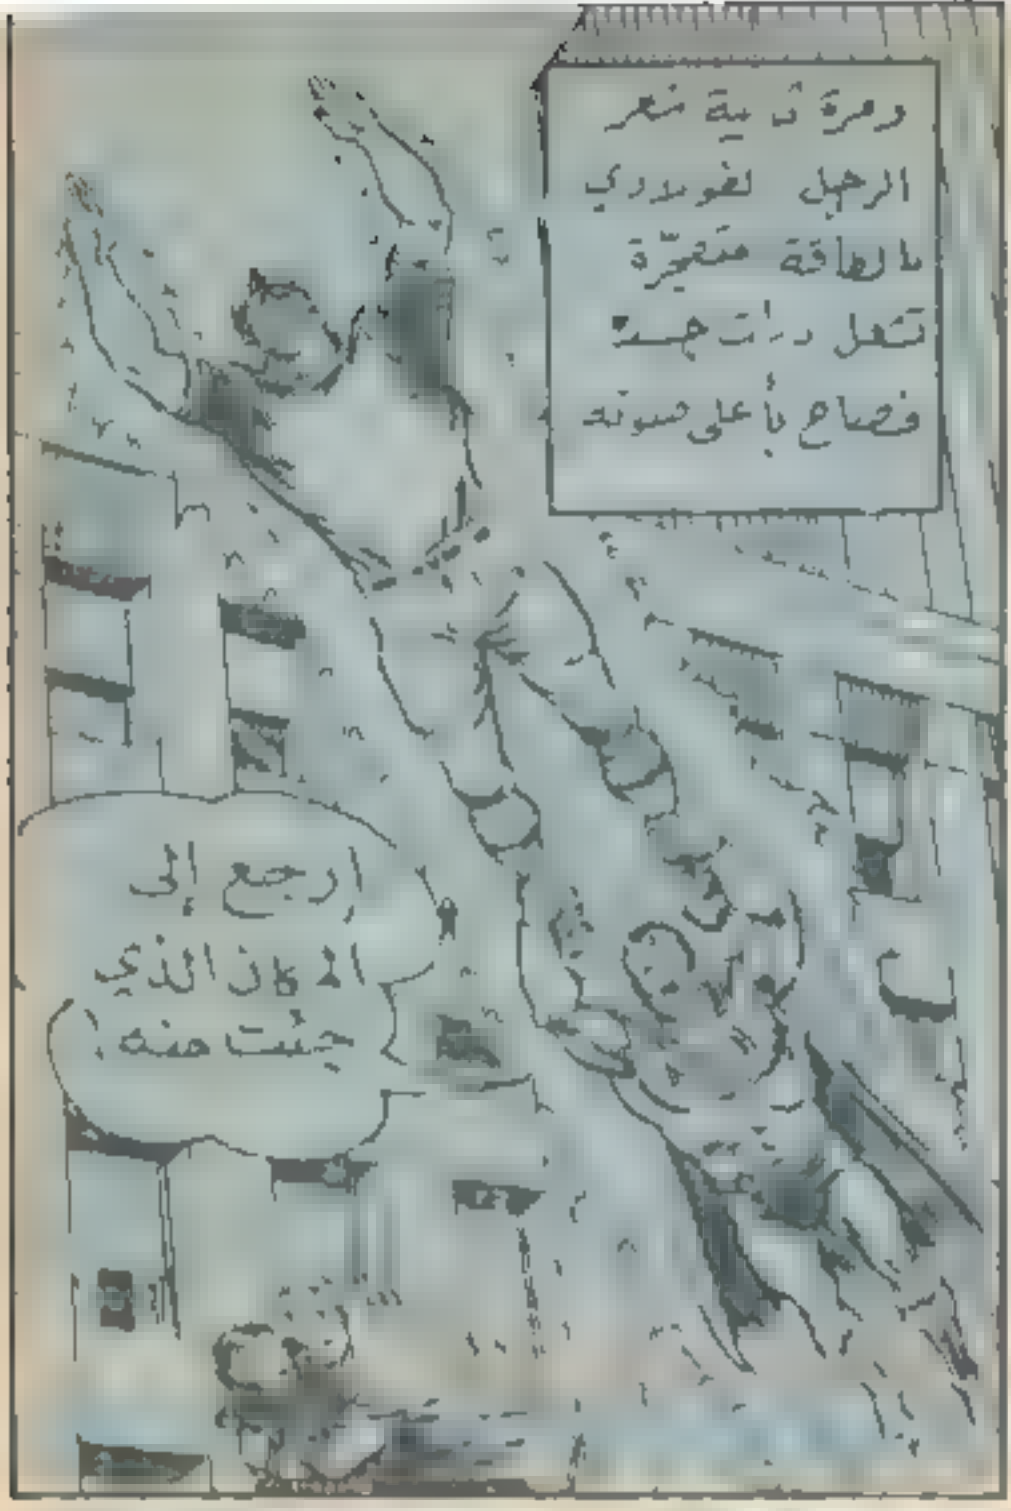 ومرة ثانية شعر
الرجل الفولاذي
بالطاقة متفجّرة
تشعل ذرات جسده
فصاح بأعلى صوته
ارجع إلى
المكان الذي
جئت منه !